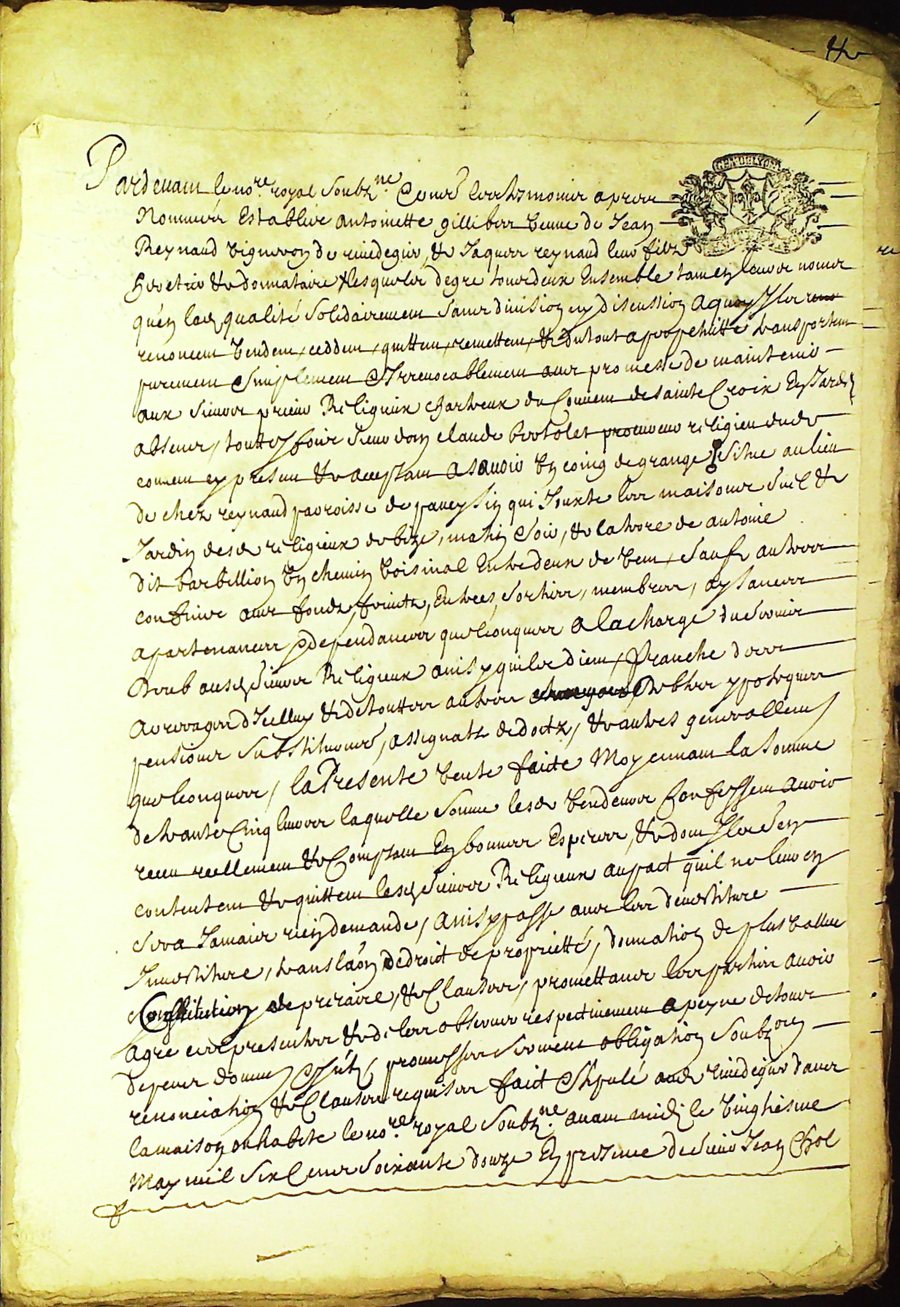 GEN. DE LYON
Pardevant le no.re royal Soubz.ne Come les tesmoins apres
Nommées Establie Antoinette gillibert Vefve de Jean
Reynaud Vigneron de rivedegier, & Jaques reynaud leur filz
heretier & donnataire lesquelz de gré tous deux Ensemble tant en leurs noms
qu'en lad. qualité Solidairement Sans division ny discussion a quoy Ilz
renoncent Vendent, ceddent, quittent, remettent, & du tout a perpetuitté transportent
purement Simplement & Irrevocablement avec promesse de maintenir
aux Sieurs prieur Religieux chartreux du Couvent de Sainte Croix En Jarez
absens, touttesfois Sieur dom claude bertolet procureur religieux dud.
couvent cy present & acceptant a Sçavoir Un coing de grange Situé au lieu
de chez reynaud parroisse de pavezin qui Jouxte les maisons Suel &
Jardin desd. religieux de bize, matin, Soir, & la terre de antoine
dit barbillion Un chemin Voisinal Entredeux de Vent, Sauf autres
confins avec fonds, fruitz, Entrées, Sorties, membres, aysances
apartenances, dependances quelconques a la charge du Servis
deub ausd. Sieurs Religieux ainsy qu'ils dient, franche des
arrerages d'Icelluy & de touttes autres debtes ypoteques
pensions Substitutions, assignatz de dotz, & autres generallement
quelconques, la Presente Vente faicte Moyennant la Somme
de trante Cinq livres laquelle Somme lesd. Vendeurs Confessent avoir
receu reellement & Comptant En bonnes Especes, & dont Ilz s'en
contentent & quittent lesd. Sieurs Religieux au pact qu'il ne leur en
Sera Jamais rien demandé, ainsy passé avec les devestiture
Investiture, translaon de droict de proprietté, donnation de plus vallue
Constitution de precaire, & Clauses, promettans les parties avoir
agré ces presentes & de les observer respectivement a peyne de tous
depens dommages Interestz, promesses Serment obligation Soubz.on
renonciation & Clauses requises faict & stipulé aud. rivedegier dans
la maison ou habite le no.re royal Soubz.ne avant midi le Vingtiesme
May mil Six Cens Soixante douze En presence de Sieur Jean Chol